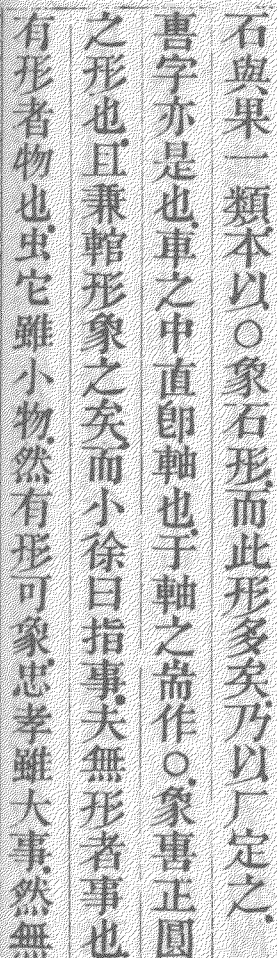 石與果一類本以○象石形而此形多矣乃以厂定之
軎字亦是也車之中直卽軸也于軸之耑作○象軎正圓
之形也且兼輨形象之矣而小徐曰指事夫無形者事也
有形者物也虫它雖小物然有形可象忠孝雖大事然無